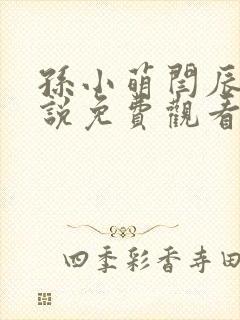 孫小萌閆辰
説免費觀看
四季彩香寺田